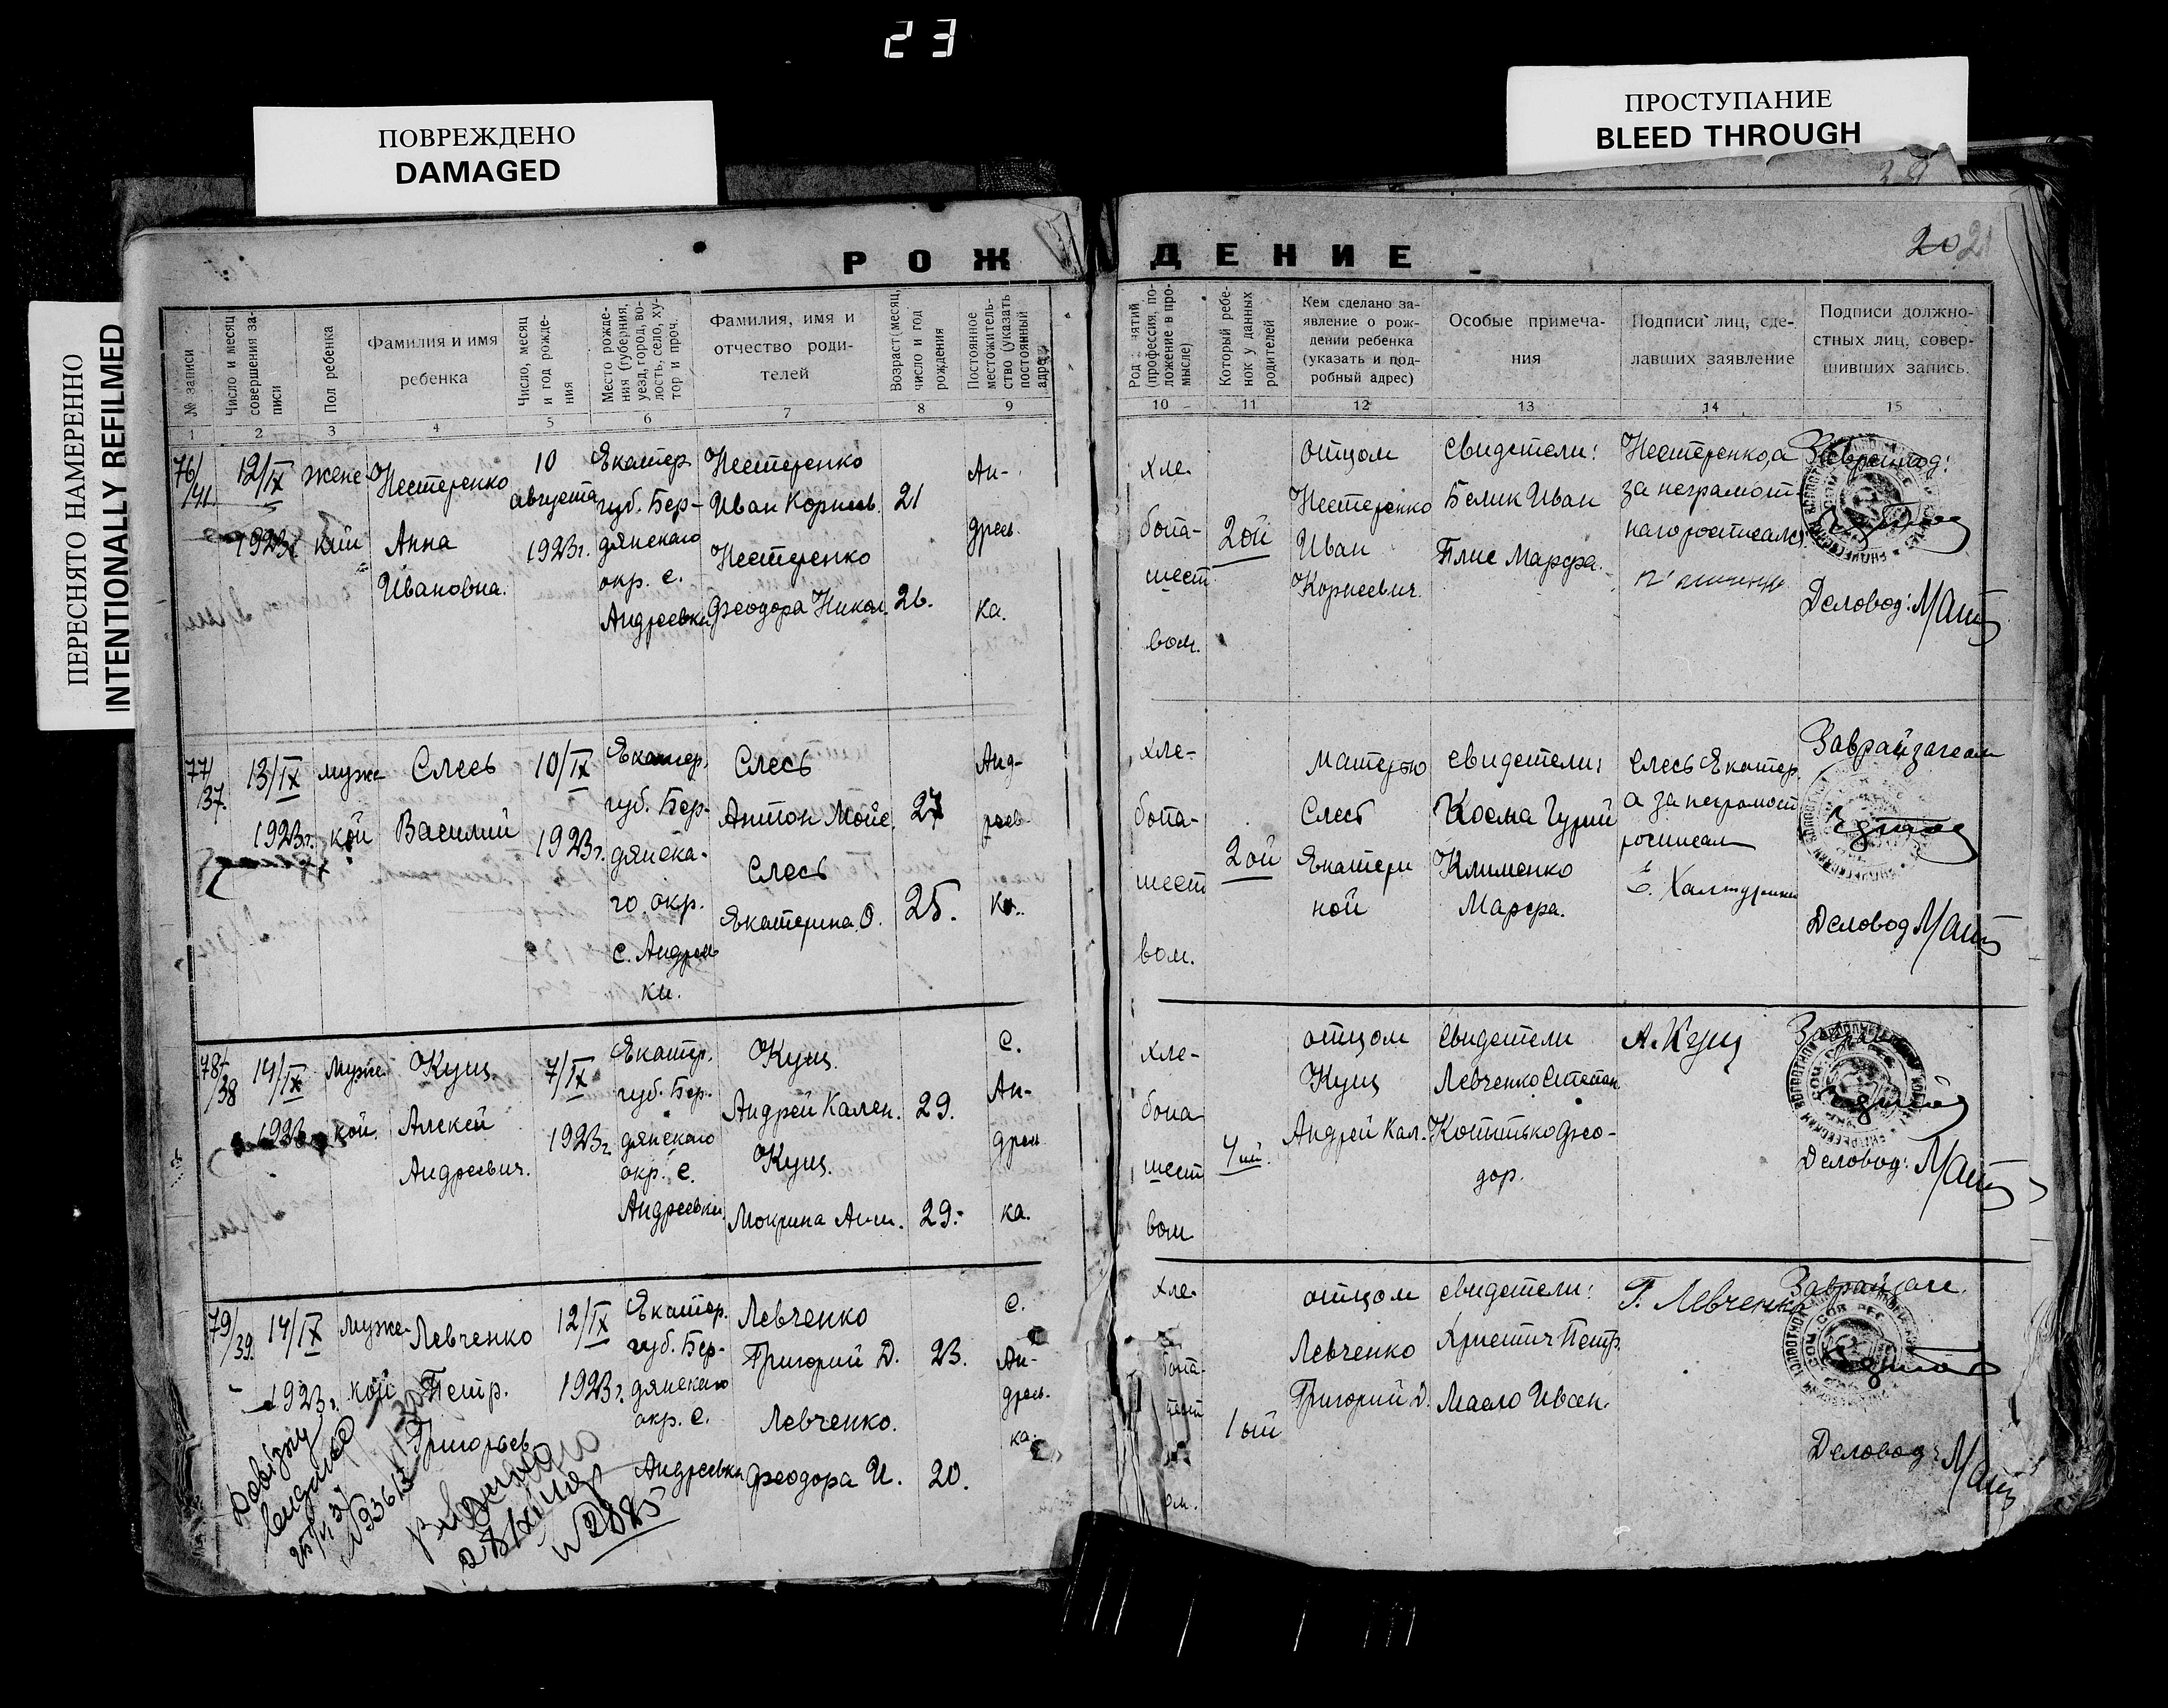 23
ПОВРЕЖДЕНО
DAMAGED
ПРОСТУПАНИЕ
BLEED THROUGH
ПЕРЕСНЯТО НАМЕРЕННО
INTENTIONALLY REFILMED
РОЖДЕНИЕ
20
№ записи
Число и месяц
совершения за-
писи
Пол ребенка
Фамилия и имя
ребенка
Число, месяц
и год рожде-
ния
Место рожде-
ния (губерния,
уезд, город, во-
лость, село, ху-
тор и проч.
Фамилия, имя и
отчество роди-
телей
Возраст (месяц,
число и год
рождения
Постоянное
местожитель-
ство (указать
постоянный
адрес
Род занятий
(профессия, по-
ложение в про-
мысле)
Который ребе-
нок у данных
родителей
Кем сделано за-
явление о рож-
дении ребенка
(указать и под-
робный адрес)
Особые примеча-
ния
Подписи лиц, сде-
лавших заявление
Подписи должно-
стных лиц, совер-
шивших запись.
1 2 3 4 5 6 7 8 9 10 11 12 13 14 15
76/41.
12/IX
1923г
женс
кий
Нестеренко
Анна
Ивановна.
10
августа
1923г.
Екатер
губ. Бер-
дянскаго
окр. с.
Андреевки
Нестеренко
Иван Корнеев.
Нестеренко
Феодора Никол.
21
26.
Ан-
дреев.
ка.
хле-
бопа-
шест
вом.
2ой
отцом
Нестеренко
Иван
Корнеевич.
свидетели:
Белик Иван
Плис Марфа.
Нестеренко, а
за неграмот-
наго росписался
Деловод:
77/37.
13/IX
1923г.
муже
кой
Слесь
Василий
10/IX
1923г.
Екатер.
губ. Бер-
дянска-
го окр.
с. Андреев
ки.
Слесь
Антон Мойс.
Слесь
Екатерина О.
27
25.
Анд-
реев-
ка.
хле-
бопа-
шест
вом.
2ой
матерью
Слесь
Екатери
ной
свидетели:
Косма Гурий
Клименко
Марфа.
Слесь Екатер.
а за неграмот
росписал
Заврайзагсом
Деловод
78/38
14/IX
1923
Муже
кой.
Кущ
Алексей
Андреевич.
7/IX
1923г.
Екатер.
губ. Бер.
дянскаго
окр. с.
Андреевки
Кущ.
Андрей Кален.
Кущ.
Мокрина Ант.
29.
29.
с.
Ан-
дреев
ка.
хле-
бопа
шест
вом
4ый.
отцом
Кущ
Андрей Кал.
свидетели
Левченко Степан
Феодор.
А. Кущ
Деловод:
79/39.
14/IX
1923г.
Муже
кой
Левченко
Петр.
Григорьев
12/IX
1923г.
Екатер.
губ. Бер-
дянскаго
окр. с.
Андреевка
Левченко
Григорий Д.
Левченко.
Феодора И.
23.
20.
с.
Ан-
дреев.
ка.
хле-
бопа-
шест
ом.
1ый
отцом
Левченко
Григорий Д.
свидетели:
Христич Петр.
Масло Ивсен.
Г. Левченко
Заврайзагс.
Деловод:
№ 2885